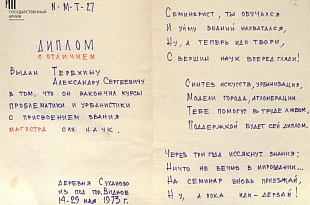 ГОСУДАРСТВЕННЫЙ
АРХИВ
N-M-T-27
ДИПЛОМ
С ОТЛИЧИЕМ
ВЫДАН ТЕРЕХИНУ
АЛЕКСАНДРУ СЕРГЕЕВИЧУ
В ТОМ, ЧТО ОН ЗАКОНЧИЛ КУРСЫ
ПРОБЛЕМАТИКИ И УРБАНИСТИКИ
С ПРИСВОЕНИЕМ ЗВАНИЯ
МАГИСТРА СИХ НАУК.
ДЕРЕВНЯ СУХАНОВО
ИЗ ПОД ГОР. ВИДНОЕ
14-29 МАЯ 1973 Г.
СЕМИНАРИСТ, ТЫ ОБУЧАЛСЯ
И УЙМУ ЗНАНИЙ НАХВАТАЛСЯ,
НУ, А ТЕПЕРЬ ИДИ ТВОРИ,
С ВЕРШИН НАУК ВПЕРЕД ГЛЯДИ!
СИНТЕЗ ИСКУССТВ, УРБАНИЗАЦИЯ,
МОДЕЛИ ГОРОДА, АГЛОМЕРАЦИИ
ТЕБЕ ПОМОГУТ В ТРУДЕ ЛЮБОМ,
ПОДДЕРЖКОЙ БУДЕТ СЕЙ ДИПЛОМ.
ЧЕРЕЗ ТРИ ГОДА ИССЯКНУТ ЗНАНИЯ:
НИЧТО НЕ ВЕЧНО В МИРОЗДАНИИ...
НА СЕМИНАР ВНОВЬ ПРИЕЗЖАЙ,
НУ, А ПОКА ИДИ - ДЕРЗАЙ!